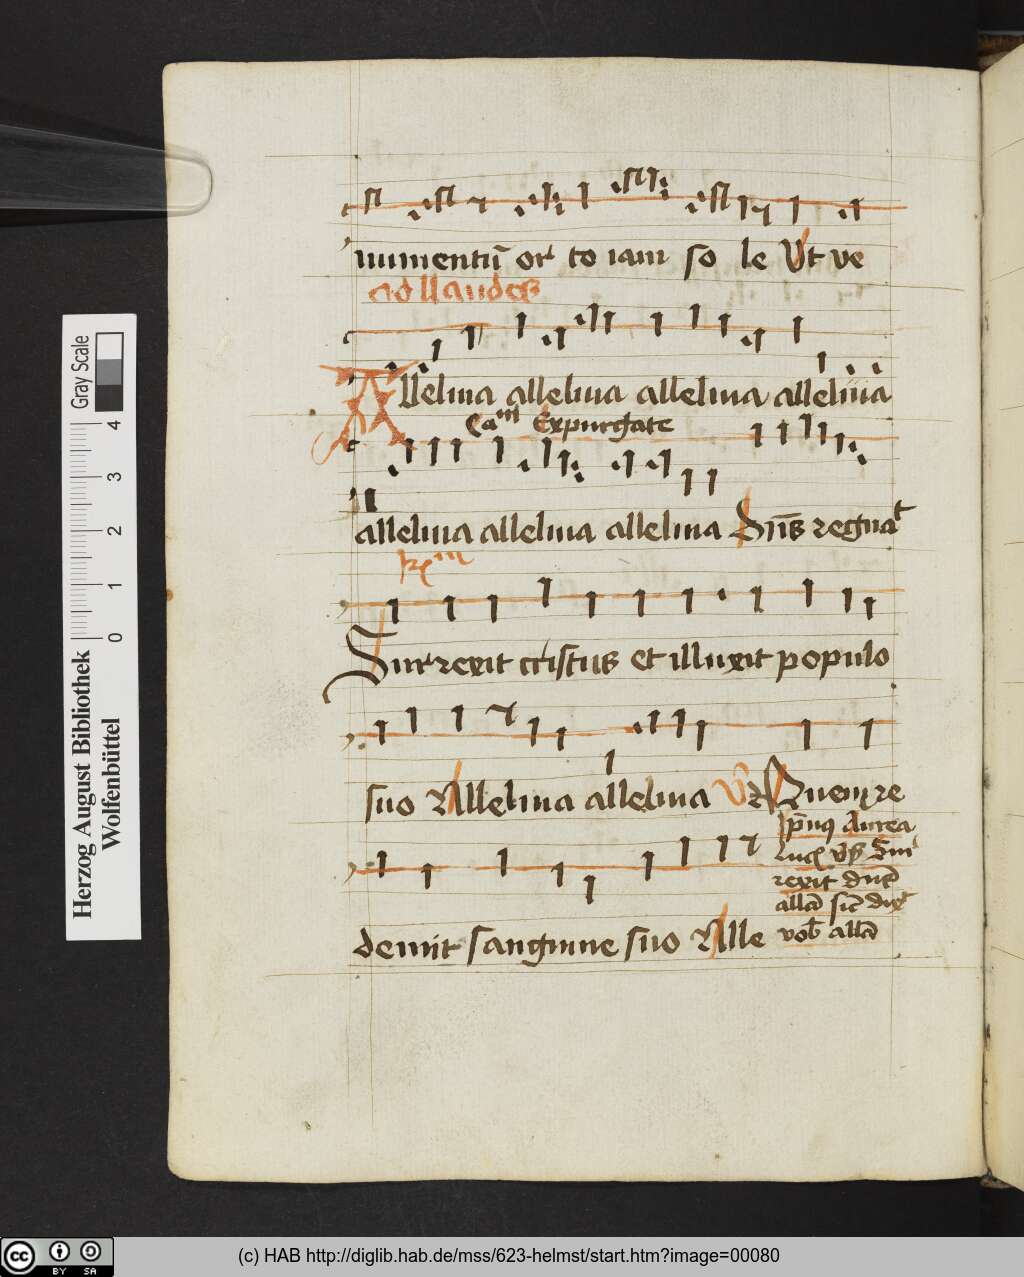 numentū or to iam so le Ut ve
ad laudes
Alleluia alleluia alleluia alleluia
Cam Expurgate
alleluia alleluia alleluia Dn̄s regnat
Surrexit cristus et illuxit populo
suo Alleluia alleluia Quem re
Aurea
luc Sur
rexit
demit sanguine suo Alle
Gray Scale
4
3
2
1
0
Herzog August Bibliothek
Wolfenbüttel
cc BY SA
(c) HAB http://diglib.hab.de/mss/623-helmst/start.htm?image=00080